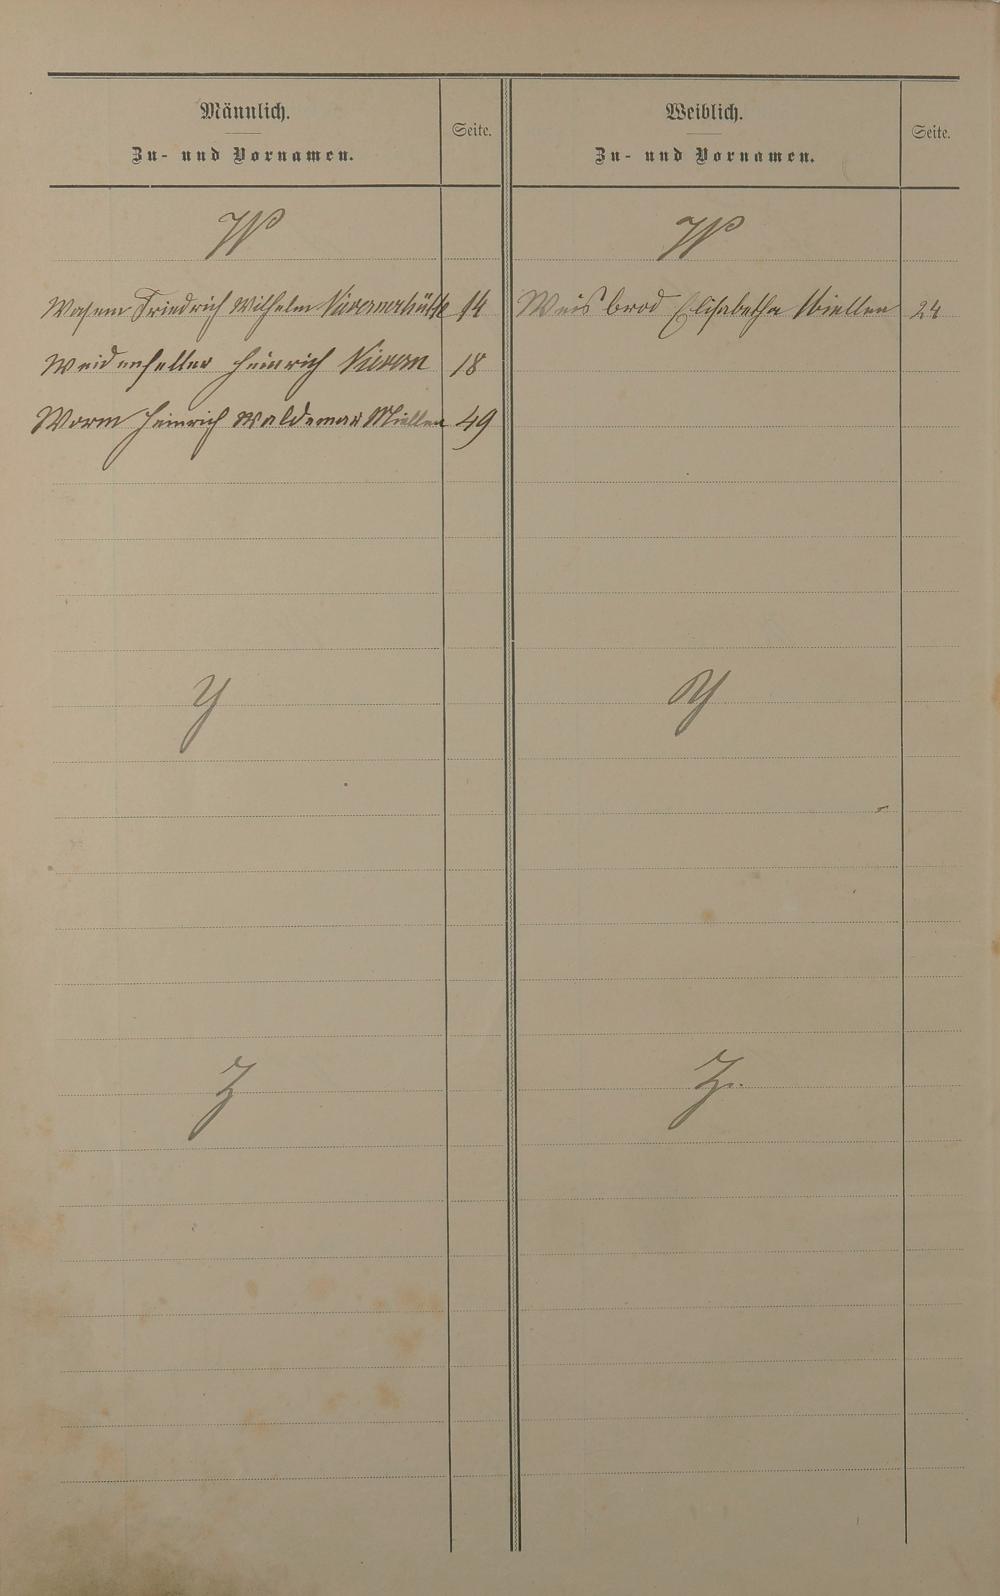 Männlich.
Zu- und Vornamen.
Seite.
Weiblich.
Zu- und Vornamen.
Seite.
W
W
Wasem Friedrich Wilhelm Nievernerhütte 14
Weisbrod Elisabetha Miellen 24
Weidenfeller Heinrich Nievern 18
Worm Heinrich Waldemar Miellen 49
Y
Y
Z
Z.